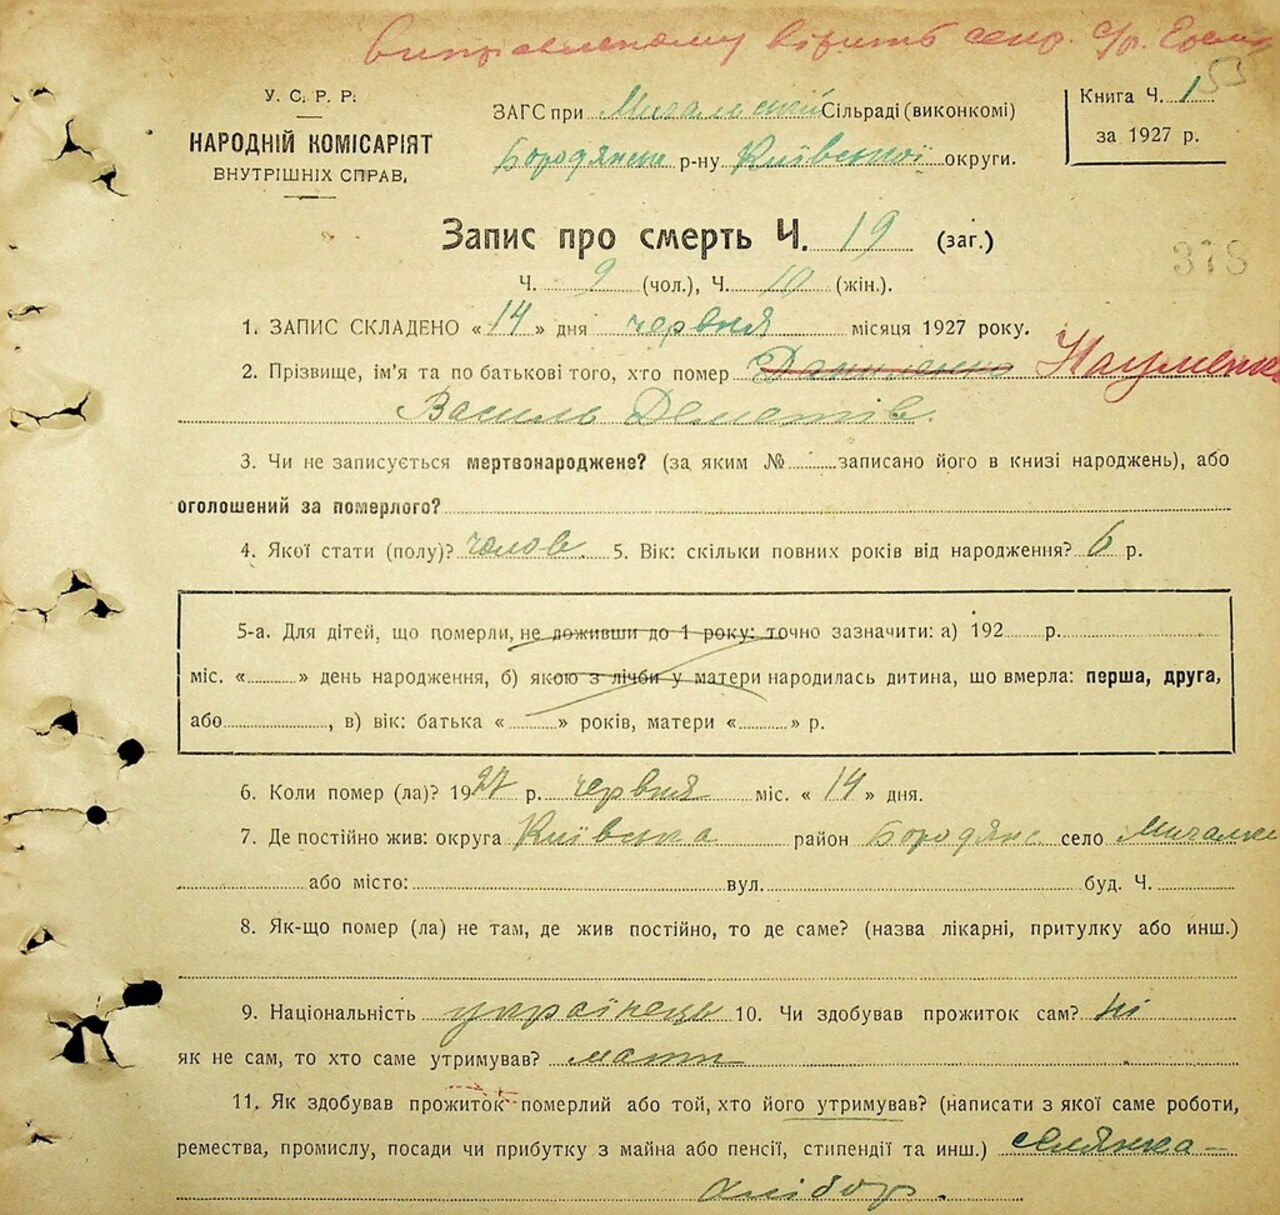 Виправленому вірить секр. с/р.
55
У. С. Р. Р.
НАРОДНІЙ КОМІСАРІЯТ
ВНУТРІШНІХ СПРАВ,
ЗАГС при Мигальській Сільраді (виконкомі)
Бородянськ р-ну Київської округи.
Книга Ч. 1
за 1927 р.
Запис про смерть Ч. 19 (заг.)
378
Ч. 9 (чол.), Ч. 10 (жін.).
1. ЗАПИС СКЛАДЕНО « 14 » дня червня місяця 1927 року.
2. Прізвище, ім'я та по батькові того, хто помер Даниленко Науменко
Василь Дементів.
3. Чи не записується мертвонароджене? (за яким № записано його в книзі народжень), або
оголошений за померлого?
4. Якої стати (полу)? чолов. 5. Вік: скільки повних років від народження? 6 р.
5-а. Для дітей, що померли, не доживши до 1 року: точно зазначити: а) 192 р.
міс. « » день народження, б) якою з лічби у матери народилась дитина, що вмерла: перша, друга,
або , в) вік: батька « » років, матери « » р.
6. Коли помер (ла)? 1927 р. червня міс. « 14 » дня.
7. Де постійно жив: округа Київська район Бородянс. село
або місто: вул. буд. Ч.
8. Як-що помер (ла) не там, де жив постійно, то де саме? (назва лікарні, притулку або инш.)
9. Національність українець 10. Чи здобував прожиток сам? ні
як не сам, то хто саме утримував? мати
11. Як здобував прожиток померлий або той, хто його утримував? (написати з якої саме роботи,
ремества, промислу, посади чи прибутку з майна або пенсії, стипендії та инш.) селянка –
хлібор.